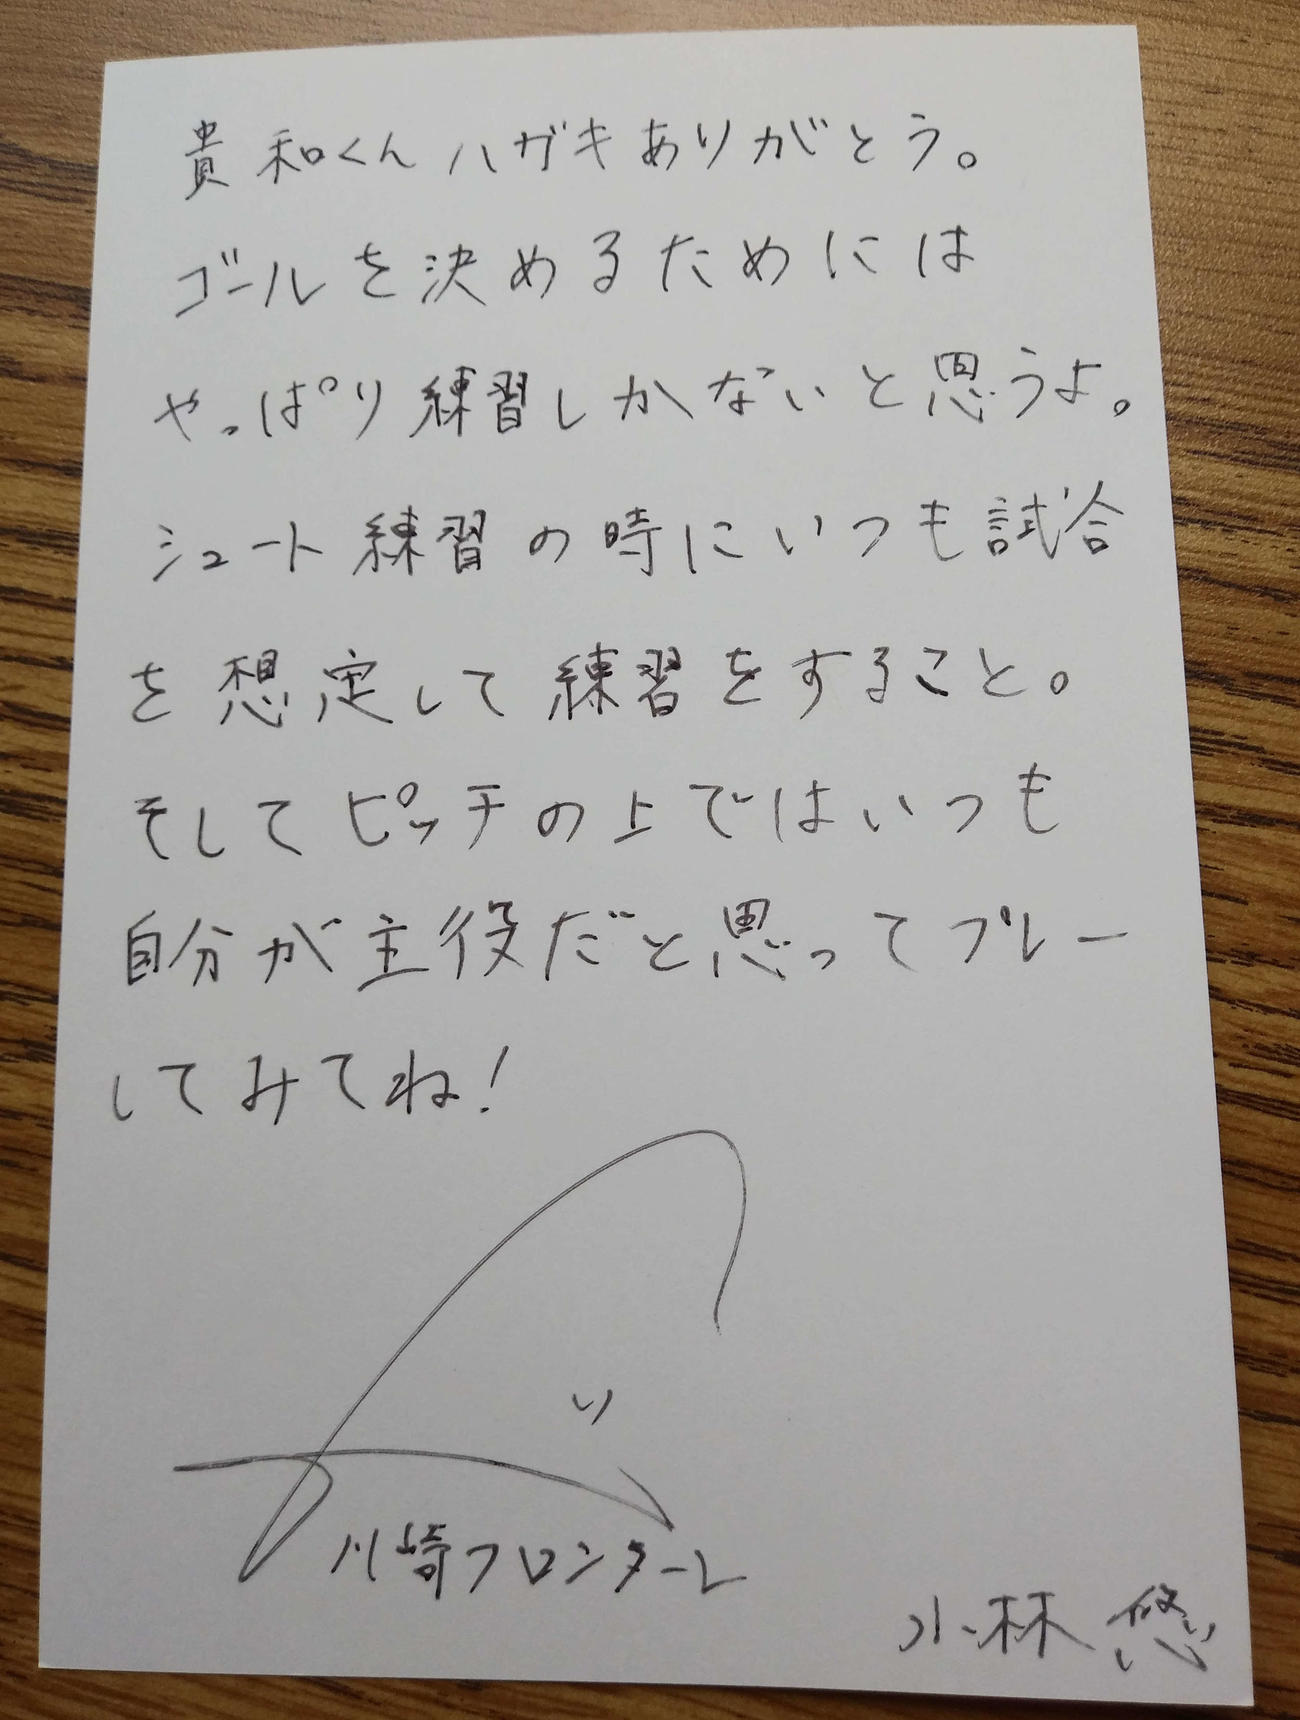 貴和くんハガキありがとう。
ゴールを決めるためには
やっぱり練習しかないと思うよ。
シュート練習の時にいつも試合
を想定して練習をすること。
そしてピッチの上ではいつも
自分が主役だと思ってプレー
してみてね!
川崎フロンターレ
小林 悠